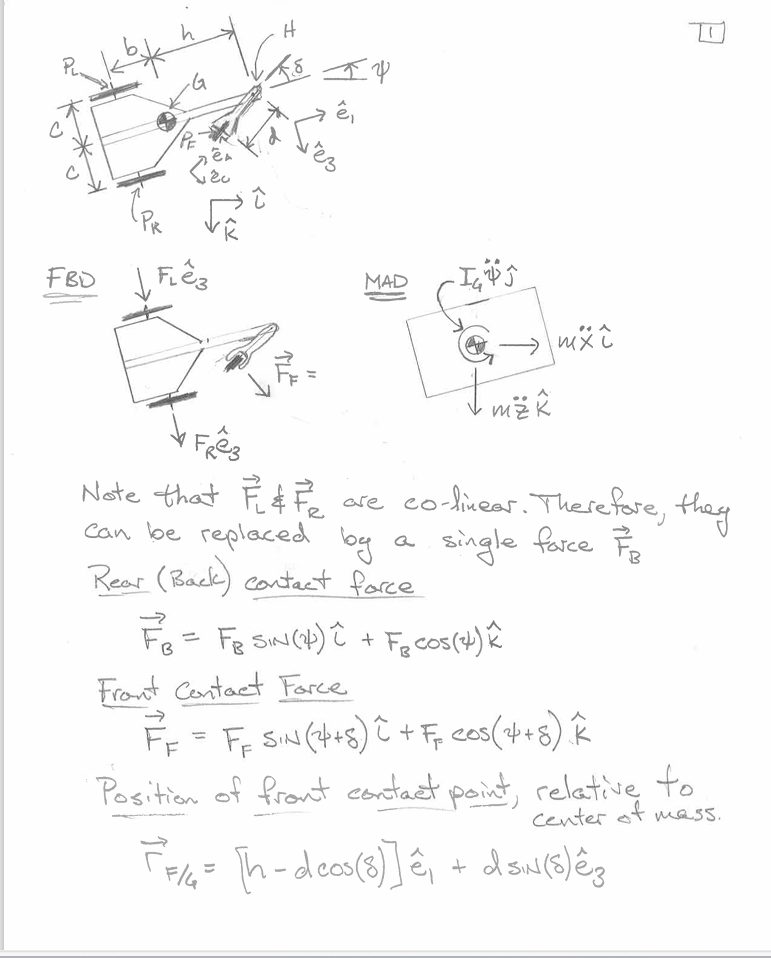 1
b h H
P_L G δ ψ
C P_F d ê₁
C ê_A ê₃
ê_C
P_R î
k̂
FBD F_L ê₃ MAD I_G ψ̈ ĵ
F⃗_F = mẍ î
mz̈ k̂
F_R ê₃
Note that F⃗_L & F⃗_R are co-linear. Therefore, they
can be replaced by a single force F⃗_B
Rear (Back) contact force
F⃗_B = F_B SIN(ψ) î + F_B cos(ψ) k̂
Front Contact Force
F⃗_F = F_F SIN(ψ+δ) î + F_F cos(ψ+δ) k̂
Position of front contact point, relative to
center of mass.
r⃗_F/G = [h - d cos(δ)] ê₁ + d SIN(δ) ê₃